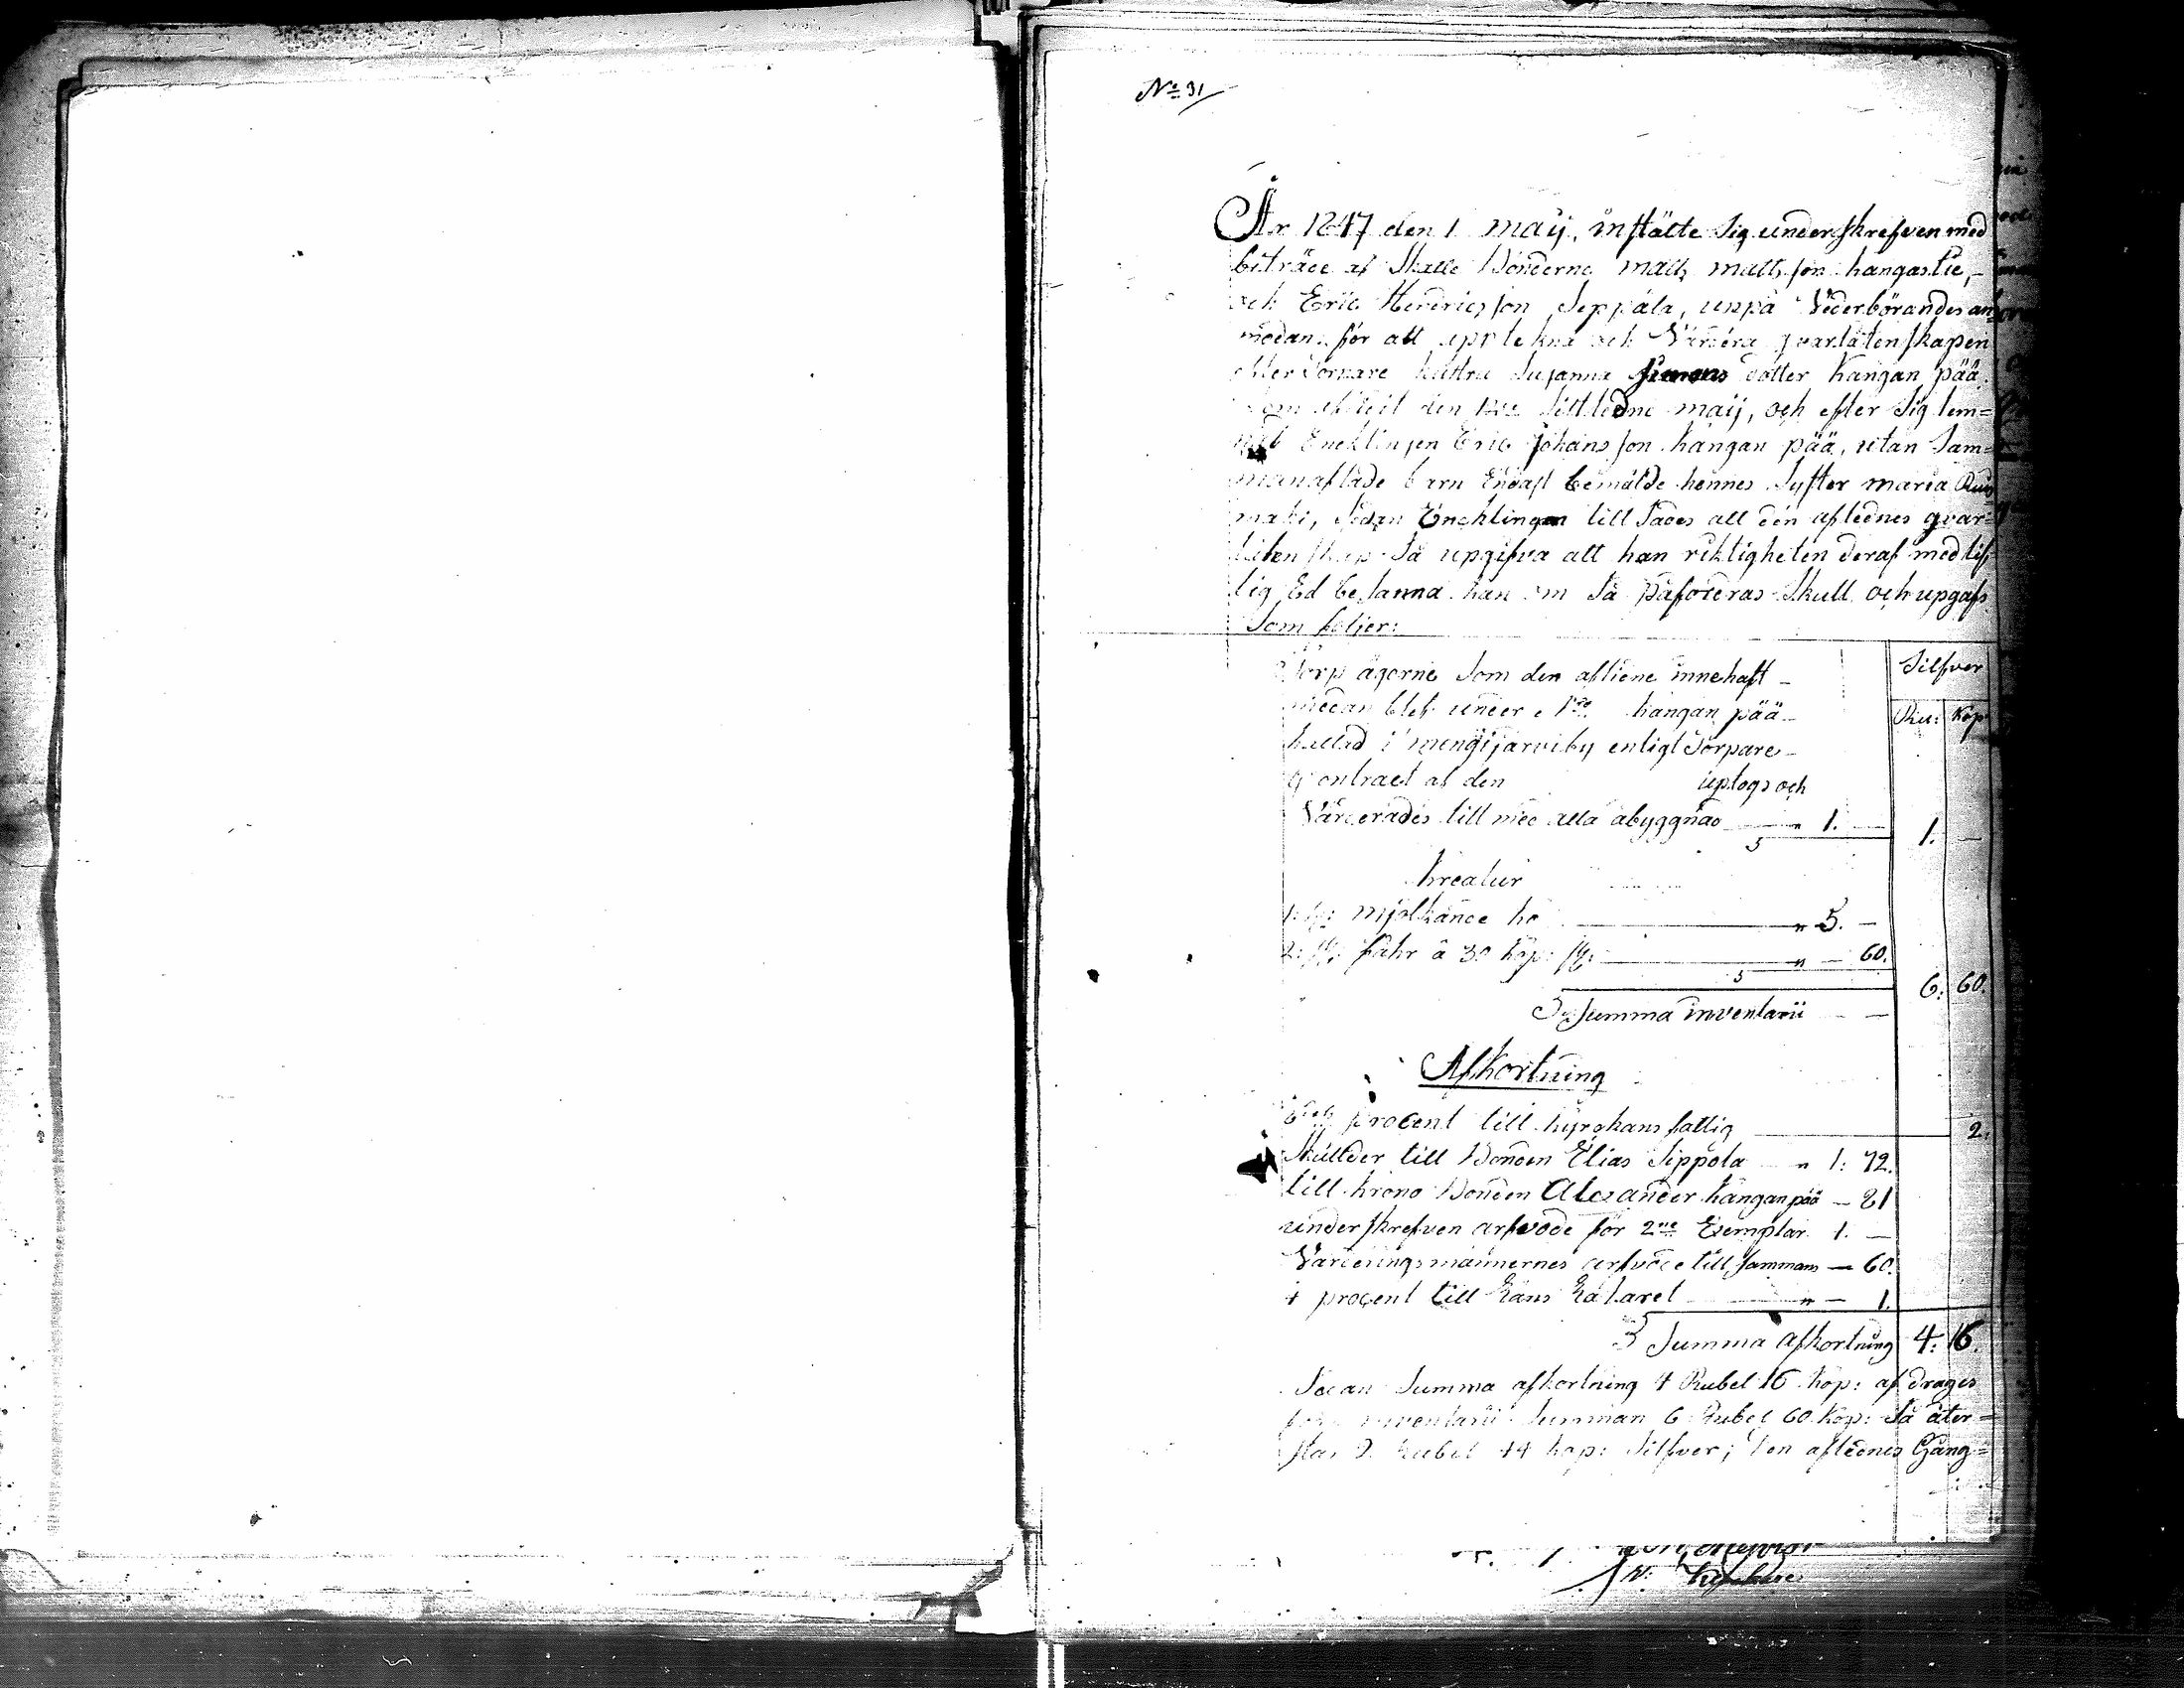 No 31
År 1847 den 1 maij, instälte Sig underskrefven med
biträde af Skatte Bönderne matts mattsson hangastie,
och Eric Hendricsson Seppälä, uppå Vederbörandes an=
modan, för att upteckna och Värdera qvarlåtenskapen
efter Torpare hustru Susanna Simons dotter Kangan pää
Som afled den Sittledne maij, och efter Sig lem=
nat Encklingen Eric Johansson Kangan pää, utan Sam=
manaflade barn Endast bemälde hennes Syster maria
maki, Sedan Encklingen till Sades att den aflednes qvar=
låtenskap Så upgifva att han riktigheten deraf med lif
lig Ed besanna kan om Så påfordras Skull och upgafs
Som följer:
Silfver
Ru: Kop
Torp ägorne Som den afledne innehaft
under Kangan pää
i mengijärvi by enligt Torpare
Contract af den uptogs och
Värderades till med alla åbyggnad " 1. — 1. —
Kreatur
1 st: mjölkande ko " 5. —
2: st: fåhr a 30 kop: st: " — 60. 6: 60.
Summa inventarii
Afkortning
procent till kyrckans fattig 2.
Skullder till Bonden Elias Sippola " 1: 72.
till krono Bonden Alexander Kangan pää — 81
underskrefven arfvode för 2ne Exemplar 1. —
Värderingsmännernes arfvode till sammans — 60.
procent till " — 1.
Summa afkortning 4: 16.
Sedan Summa afkortning 4 Rubel 16 kop: af drages
från inventarii Summan 6 Rubel 60 kop: Så åter=
står 2 Rubel 44 kop: Silfver; den aflednes Gång=